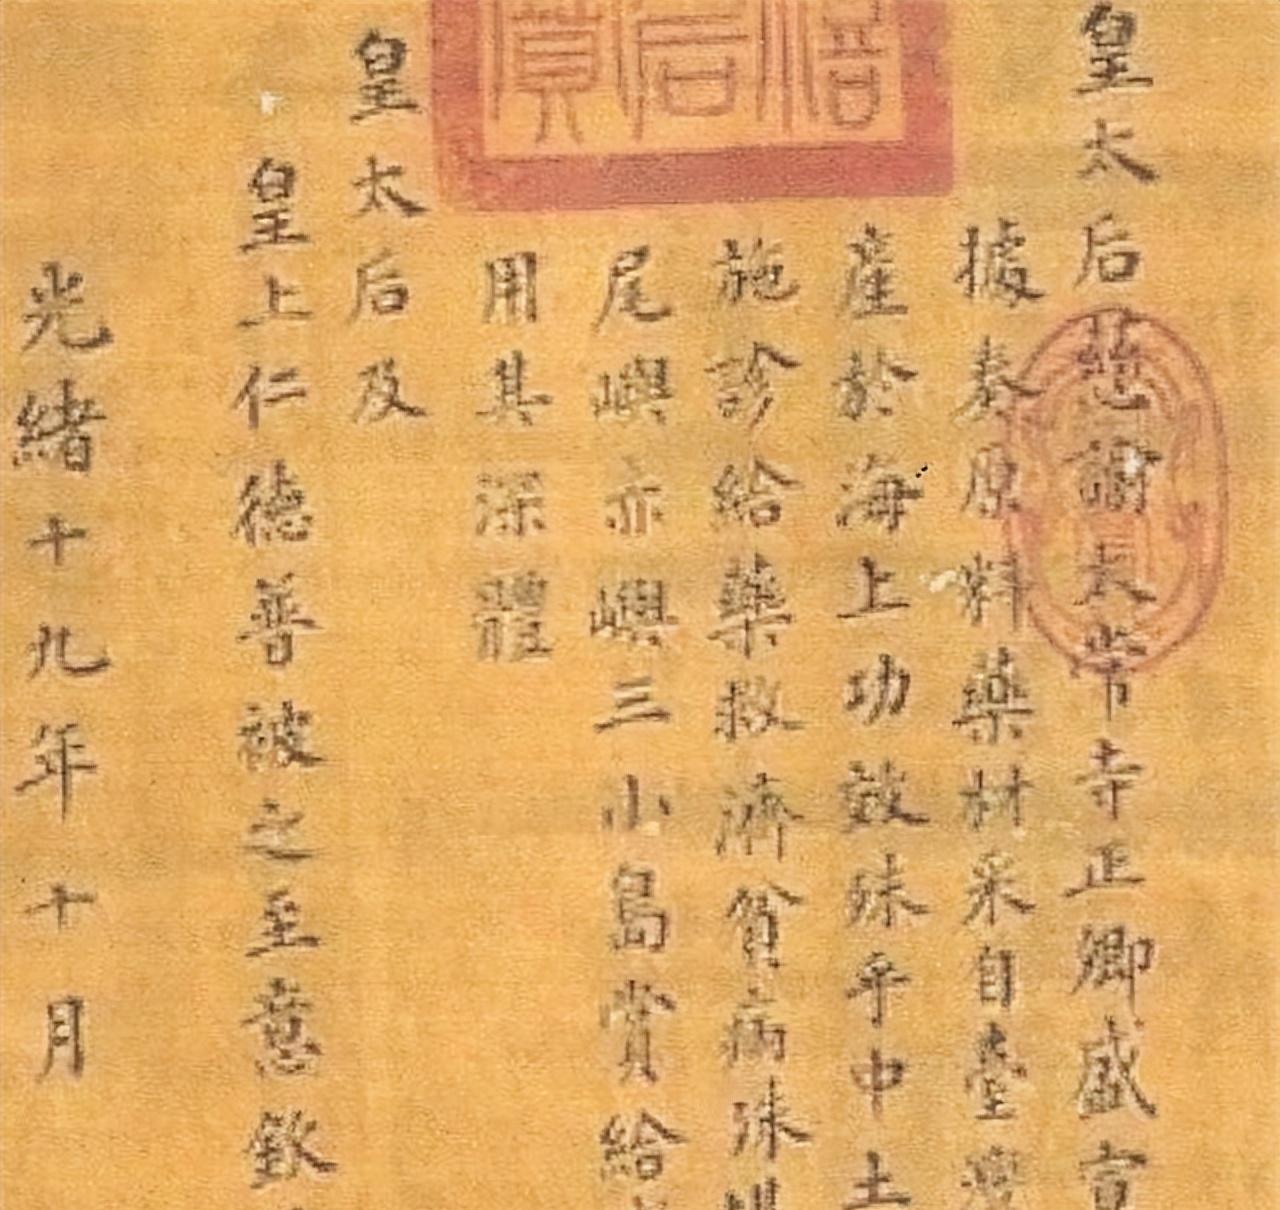 皇太后慈諭太常寺正卿盛宣
據奏原料藥材采自臺灣
產於海上功效殊乎中土
施診給藥救濟貧病殊堪
尾嶼赤嶼三小島賞給
用其深體
皇太后及
皇上仁德普被之至意欽
光緒十九年十月